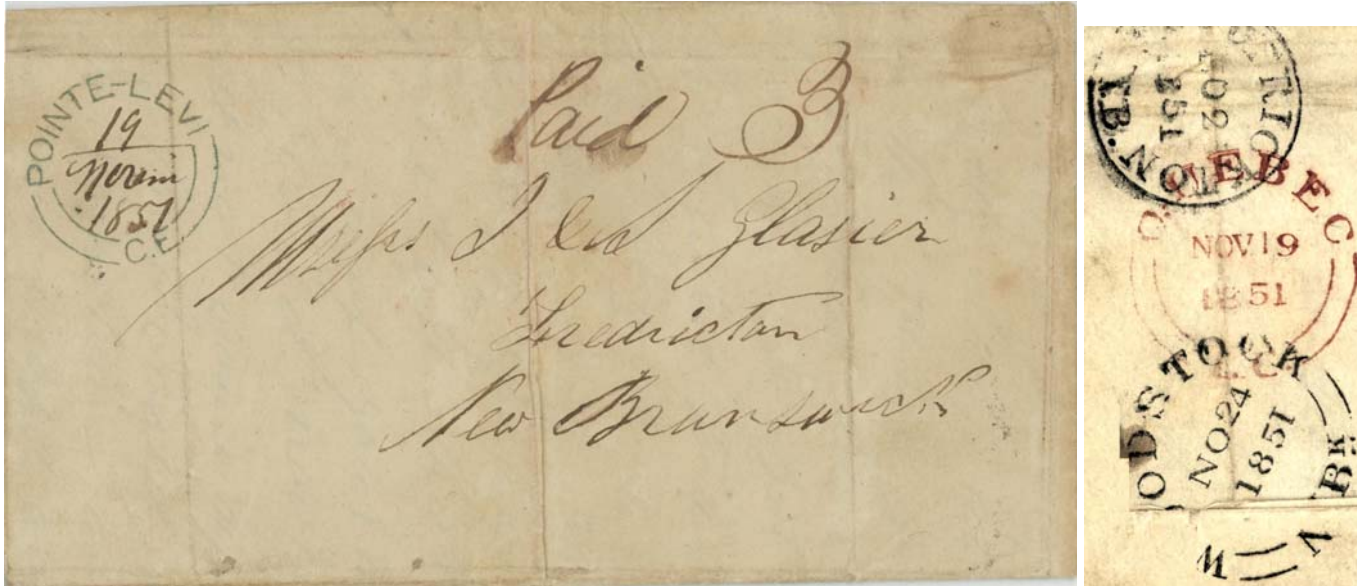 POINTE-LEVI
19
1851
C.E
Paid 3
Messrs J & S Glasier
Fredricton
New Brunswick
N.B.
QUEBEC
NOV 19
1851
L.C
NO 24
1851